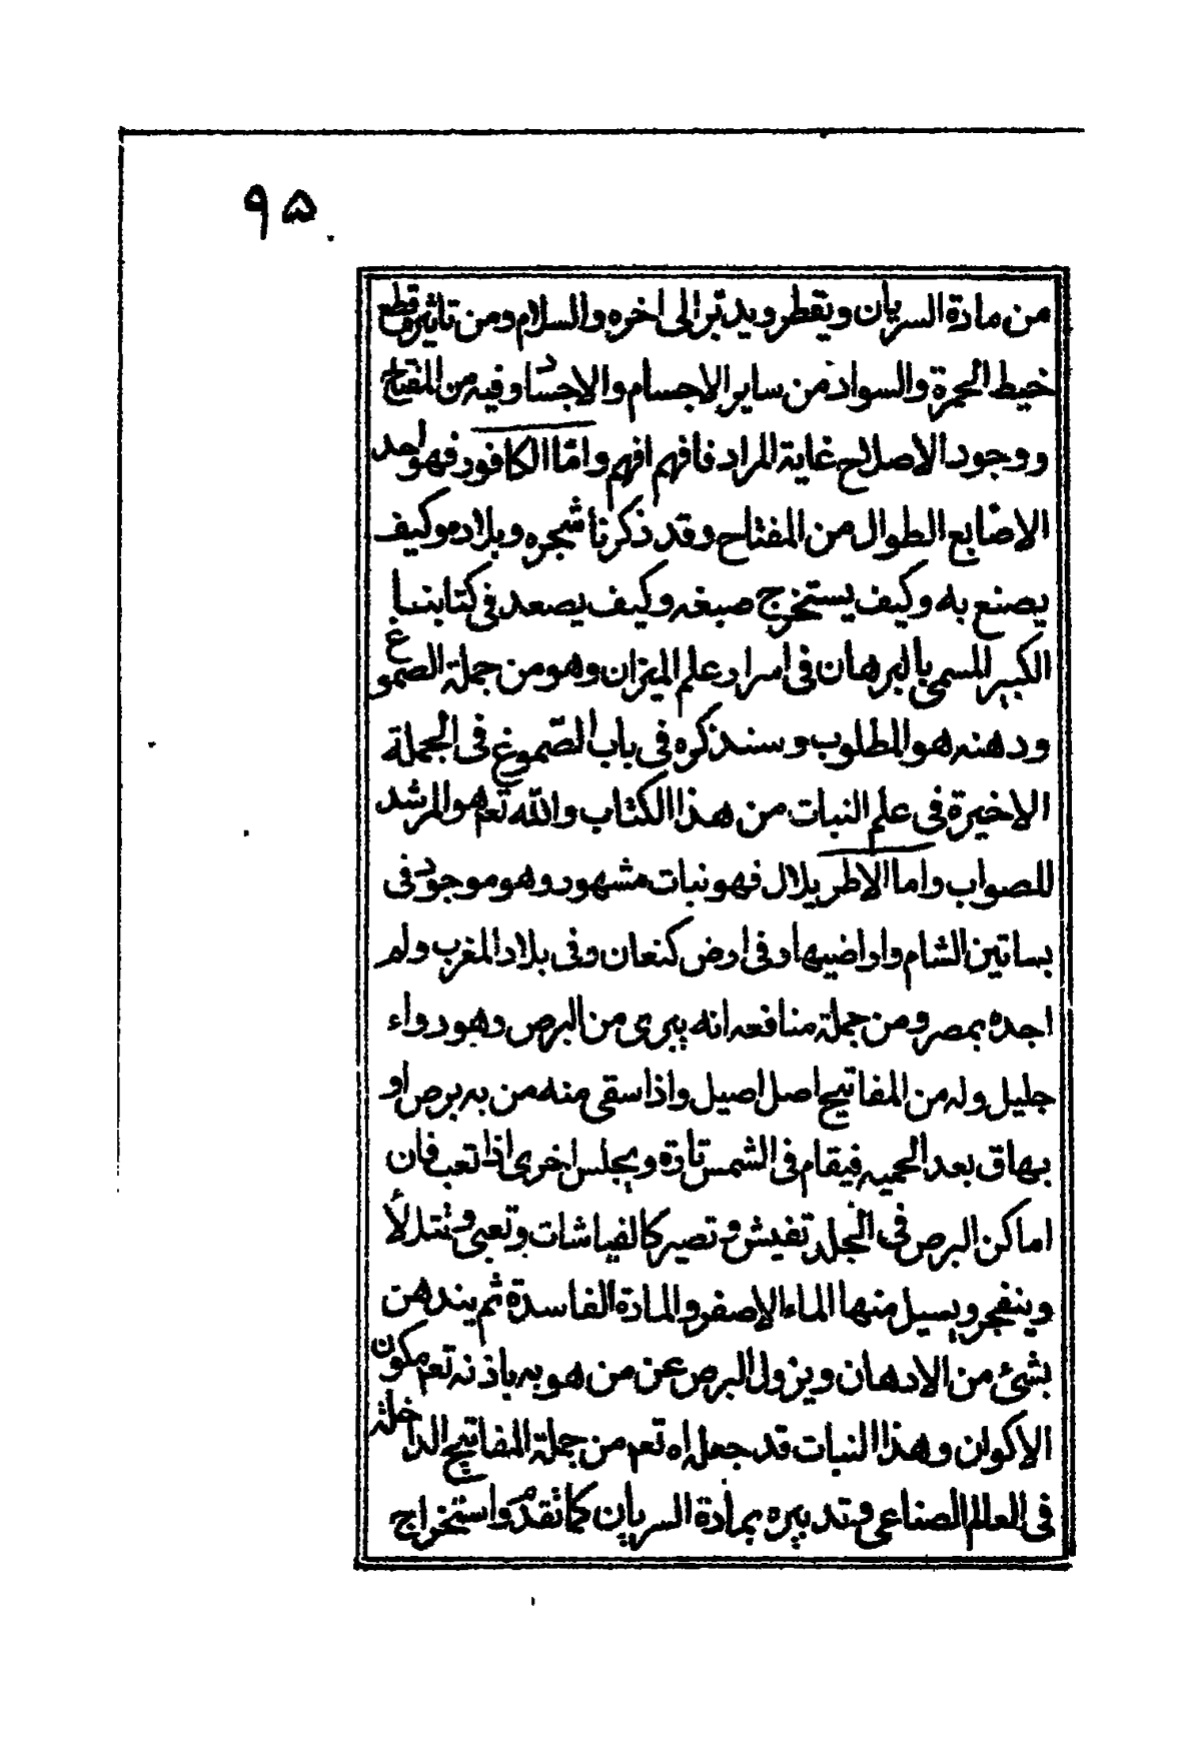 ۹۵
من مادة السريان ويقطر ويدبّر الى اخره والسلام ومن تاثيره قطع
خيط الحمرة والسواد من ساير الاجسام والاجساد وفيه من المفتاح
ووجود الاصلاح غاية المراد فافهم افهم وامّا الكافور فهو احد
الاصابع الطوال من المفتاح وقد ذكرنا شجره وبلاده وكيف
يصنع به وكيف يستخرج صبغه وكيف يصعد في كتابنا
الكبير المسمى بالبرهان في اسرار علم الميزان وهو من جملة الصموغ
ودهنه هو المطلوب وسنذكره في باب الصّموغ في الجملة
الاخيرة في علم النبات من هذا الكتاب والله تعم هو المرشد
للصواب واما الاطريلال فهو نبات مشهور وهو موجود في
بساتين الشام واراضيها وفي ارض كنعان وفي بلاد المغرب ولم
اجده بمصر ومن جملة منافعه انه يبرى من البرص وهو دواء
جليل وله من المفاتيح اصل اصيل واذا سقى منه من به برص او
بهاق بعد الحميه فيقام في الشمس تارة ويجلس اخرى اذا تعب فان
اماكن البرص في الجلد تفيش وتصير كالفياشات وتعبى وتتدلأ
وينفجر ويسيل منها الماء الاصفر والمادة الفاسدة ثم يندهن
بشئ من الادهان ويزول البرص عن من هو به باذنه تعم مكون
الاكوان وهذا النبات قد جعله اه تعم من جملة المفاتيح الداخلة
في العالم الصناعى وتدبيره بمادة السريان كما تقدّم واستخراج